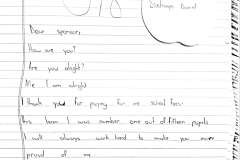 Dear sponsor,
How are you?
Are you alright?
Me I am alright
I thank you for paying for me school fees.
this term I was number one out of fifteen pupils
I will always work hard to make you more
proud of me.